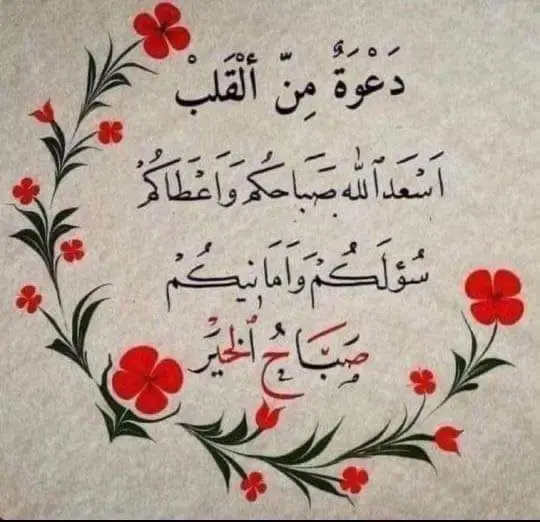 دَعْوَةٌ مِنّ ألْقَلبْ
اَسْعَدَٱللّٰه صَبَاحكُم وَاَعْطَاكُمْ
سُؤلَكُمْ وَاَمَانِيكُمْ
صَبَّاحُ ٱلخَيَرْ